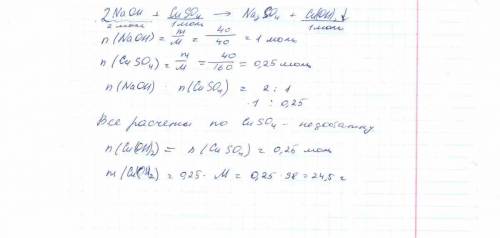 2NaOH + CuSO₄ → Na₂SO₄ + Cu(OH)₂↓
2 моль 1 моль 1 моль
n(NaOH) = m/M = 40/40 = 1 моль
n(CuSO₄) = m/M = 40/160 = 0,25 моль
n(NaOH) : n(CuSO₄) = 2 : 1
1 : 0,25
Все расчеты по CuSO₄ - недостатку
n(Cu(OH)₂) = n(CuSO₄) = 0,25 моль
m(Cu(OH)₂) = 0,25 · M = 0,25 · 98 = 24,5 г